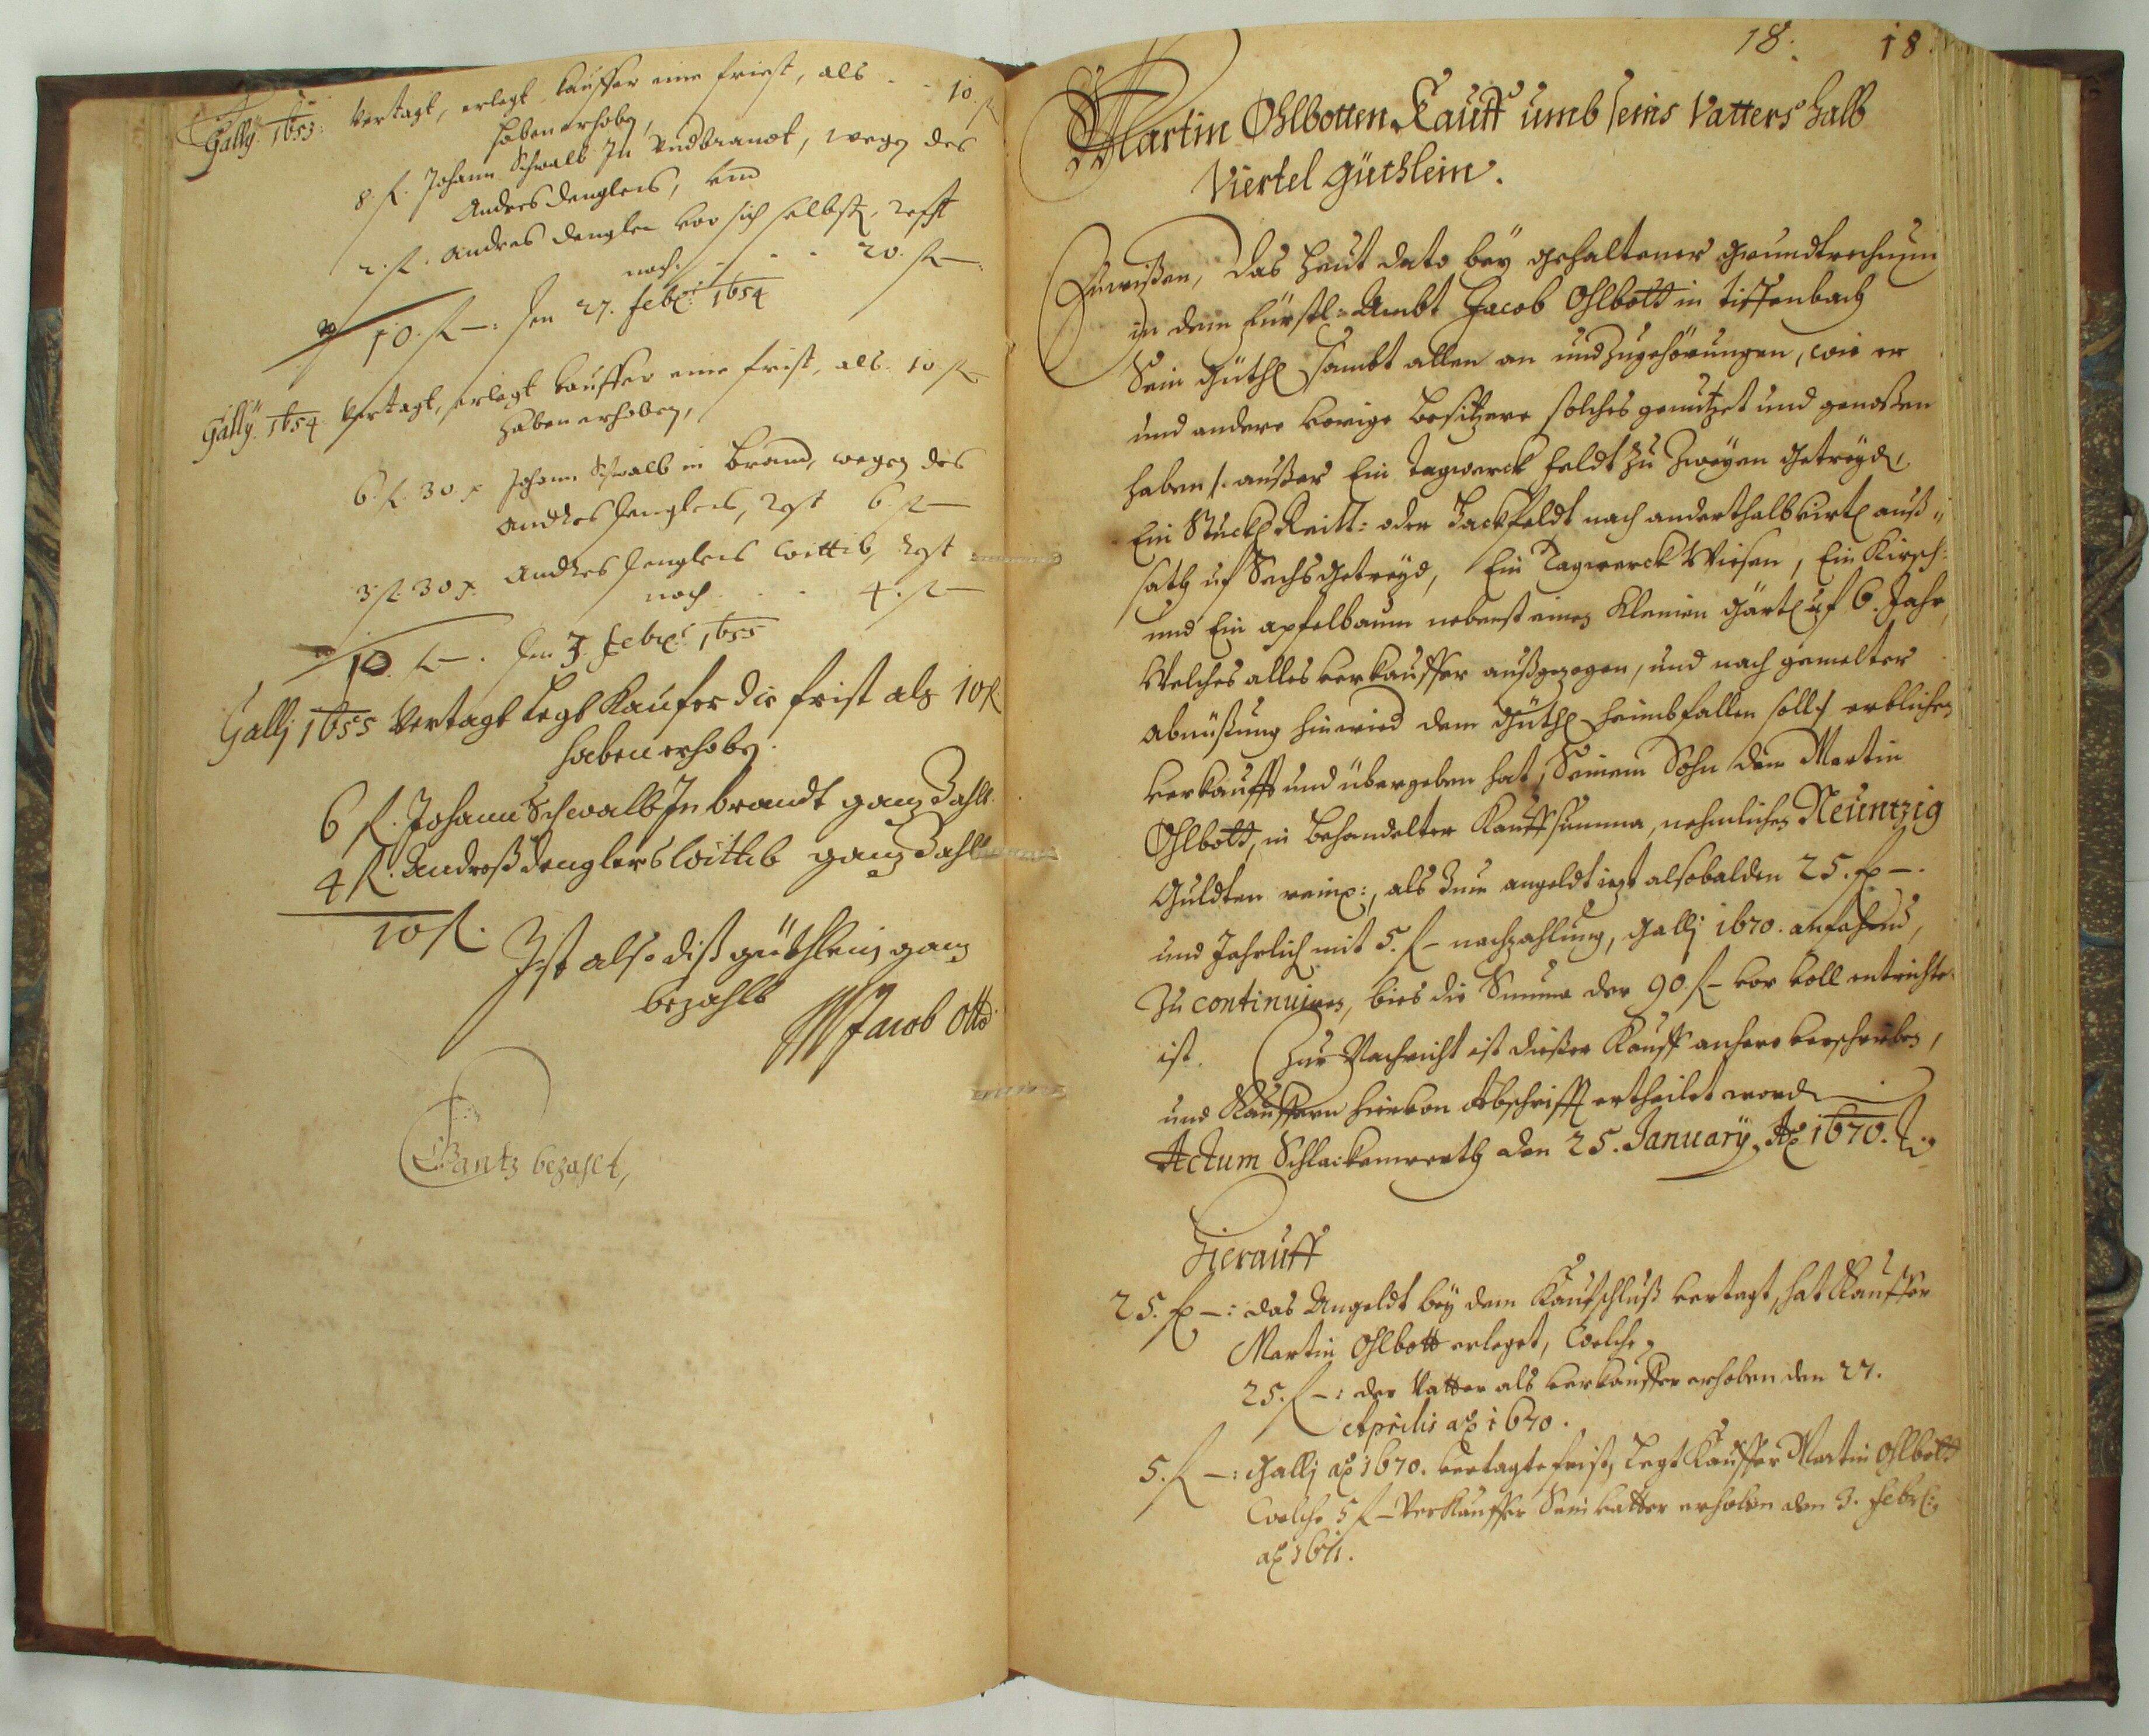 Gally. 1653. Vertagt, erlegt Kauffer eine friest, als - - 10. fl
haben erhoben,
8. fl. Johann Schwalb In Brandt, wegen des
Andres Denglers, und
2. fl. Andres Dengler vor sich selbst, rest
noch. - - - 20. fl —
10. fl —: den 27. Febr: 1654
Gally. 1654 Vertagt, erlegt Kauffer eine frist, als. 10. fl
haben erhoben,
6. fl. 30 x Johann Schwalb in Brand, wegen des
Andres Denglers, rest 6. fl —
3. fl. 30 x. Andres Denglers Wittib, rest
noch . . . 4. fl —
10. fl —. den 3. Febr: 1655
Gallj 1655 Vertagt Legt Kaufer die frist als 10 fl.
haben erhoben.
6 fl. Johann Schwalb In brandt gantz Zahlt.
4 fl. Andreß Denglers Wittib gantz Zahlt
10 fl.
Ist also diß güthlein gantz
bezahlt
Jacob Otto
Gantz bezahlt,
18. 18.
Martin Ohlbotten Kauff umb seins Vatters halb
Viertel güthlein.
Zuwißen, das heut dato bey gehaltener grundtrechnung
in dem Fürstl: Ambt Jacob Ohlbott in tiffenbach
Sein Güthl sambt allen an und zugehörungen, wie er
und andere vorige besitzere solches genutzet und genoßen
haben /: außer Ein tagwerck feldt zu zweyen getreyd,
Ein Stückl Reitt: oder Hackfeldt nach anderthalb virtl auß„
sath uf Sechs getreyd, Ein Tagwerck Wiesen, Ein Kirsch:
und Ein apfelbaum nebenst einen Kleinen Gärtl uf 6. Jahr,
Welches alles verkauffer außgezogen, und nach gemelter
abnützung hinwied dem Güthl heimbfallen soll :/ erblichen
verkaufft und übergeben hat, Seinem Sohn dem Martin
Ohlbott, in behandelter Kauffsumma, nehmlichen Neuntzig
Guldten reinl:, als Zum angeldt iezt alsobalden 25. fl —.
und Jahrlich mit 5. fl — nachzahlung, Gallj 1670. anfahend,
Zu continuiren, bies die Summa der 90. fl — vor voll entrichte
ist. Zur Nachricht ist dießer Kauff anhero verschrieben,
und Kauffern hievon Abschrifft ertheilet word
Actum Schlackenwerth den 25. January Ao 1670.
Hierauff
25. fl —: das Angeldt bey dem Kaufschluß vertagt, hat Kauffer
Martin Ohlbott erleget, Welche,
25. fl —: der Vatter als verkauffer erhoben den 27.
Aprilis ao 1670.
5. fl —: Gallj ao 1670. vertagte frist, Legt Kauffer Martin Ohlbott
Welche 5 fl — Verkauffer Sein vatter erhoben den 3. Febr:
ao 1671.